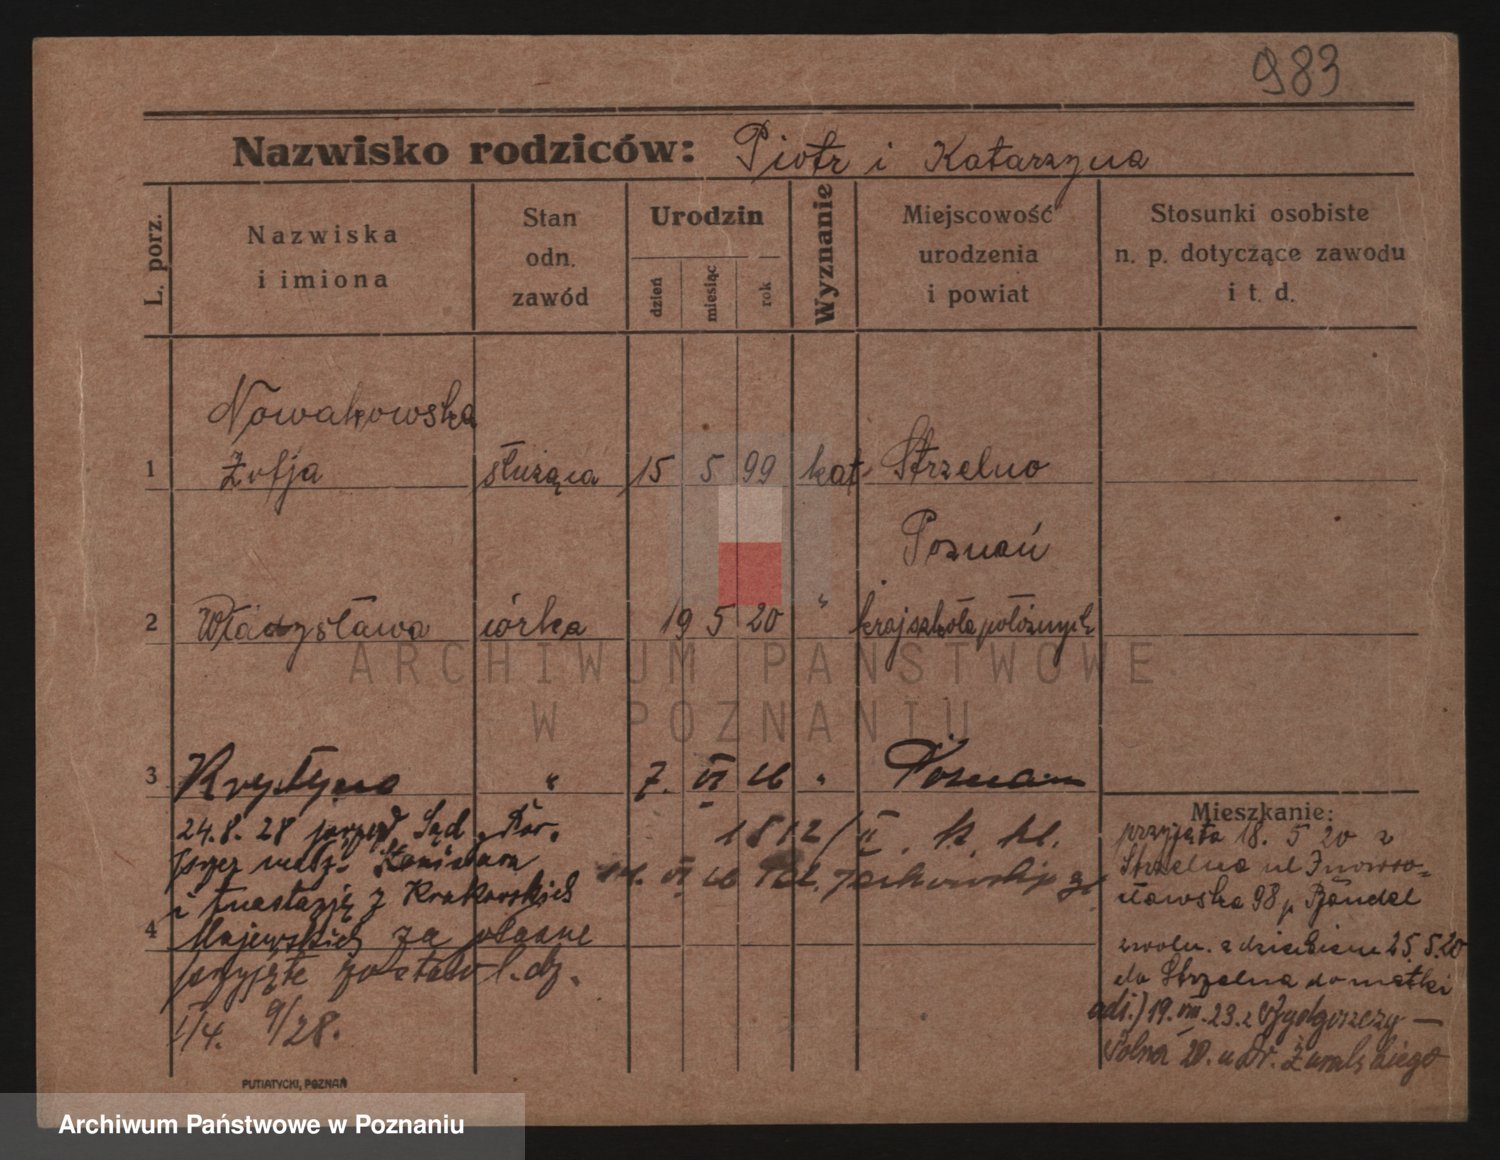 983
Nazwisko rodziców: Piotr i Katarzyna
L. porz.
Nazwiska
i imiona
Stan
odn.
zawód
Urodzin
dzień
miesiąc
rok
Wyznanie
Miejscowość
urodzenia
i powiat
Stosunki osobiste
n. p. dotyczące zawodu
i t. d.
Nowakowska
1 Zofja służąca 15 5 99 kat Strzelno
Poznań
2 Władysława córka 19 5 20 " kraj szkoła położnych
3 Krystyna " 7. VI 26 " Poznań
24.8.28 Sąd
1812/II.
i Anastazję z Krakowskich
4
Majewskich za własne
przyjęte
9/28.
Mieszkanie:
przyjęta 18. 5 20 z
Strzelna ul Inowro-
cławska 98 p
zwoln. z dzieckiem 25.5.20
do Strzelna do matki
19. VIII. 23. z Bydgoszczy —
Polna 20. u Dr. Żuralskiego
PUTIATYCKI, POZNAŃ
ARCHIWUM PAŃSTWOWE
W POZNANIU
Archiwum Państwowe w Poznaniu